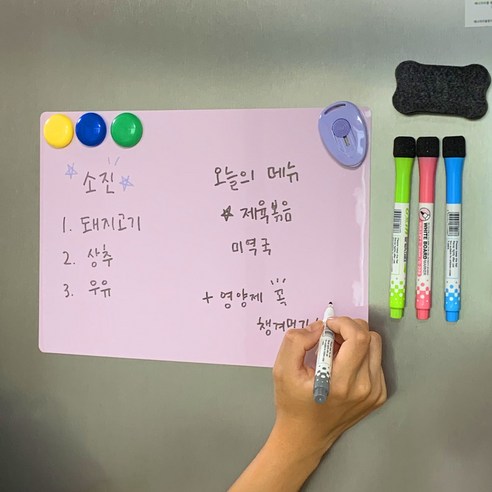 소진
1. 돼지고기
2. 상추
3. 우유
오늘의 메뉴
☆ 제육볶음
미역국
+ 영양제 꼭
챙겨먹기
WHITE BOARD